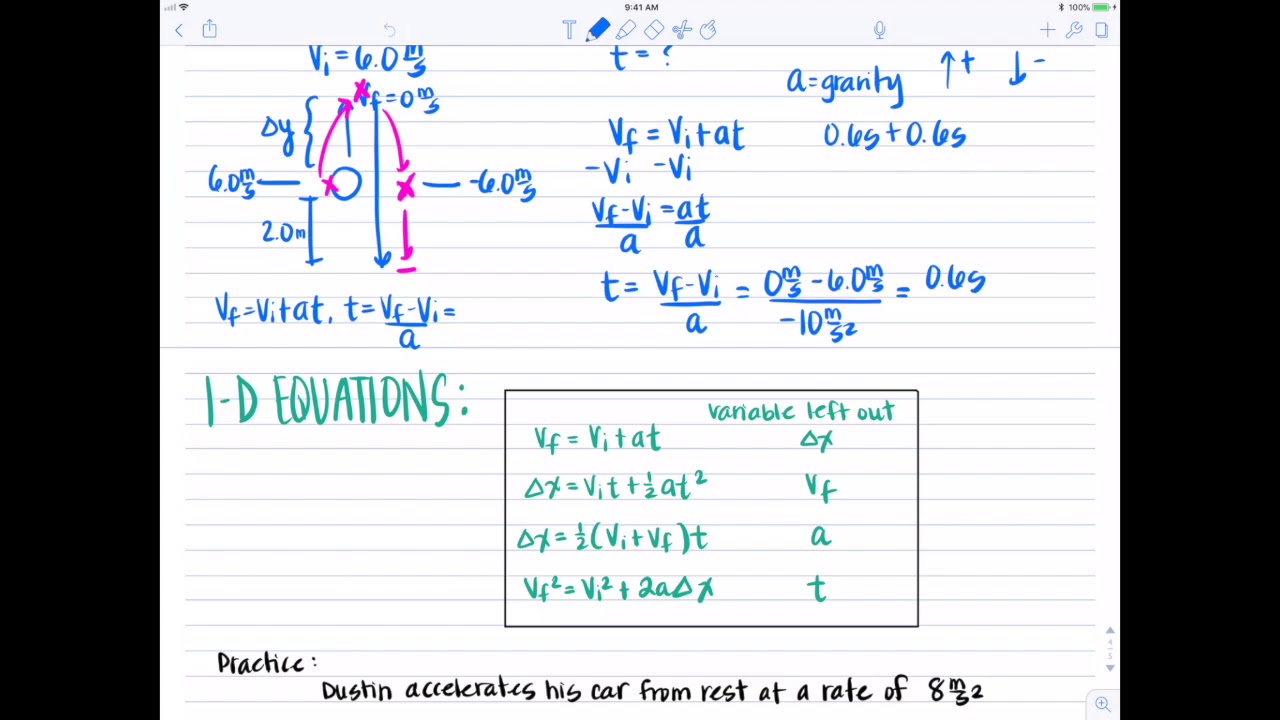 9:41 AM
100%
Vi = 6.0 m/s
t = ?
a = gravity
↑+ ↓-
Vf = 0 m/s
Δy
6.0 m/s
-6.0 m/s
2.0m
Vf = Vi + at
0.6s + 0.6s
-Vi -Vi
Vf - Vi / a = at / a
t = Vf - Vi / a = 0 m/s - 6.0 m/s / -10 m/s2 = 0.6s
Vf = Vi + at, t = Vf - Vi / a =
1-D EQUATIONS:
variable left out
Vf = Vi + at Δx
Δx = Vit + ½at² Vf
Δx = ½(Vi + Vf)t a
Vf² = Vi² + 2aΔx t
Practice:
Dustin accelerates his car from rest at a rate of 8 m/s2
4
5